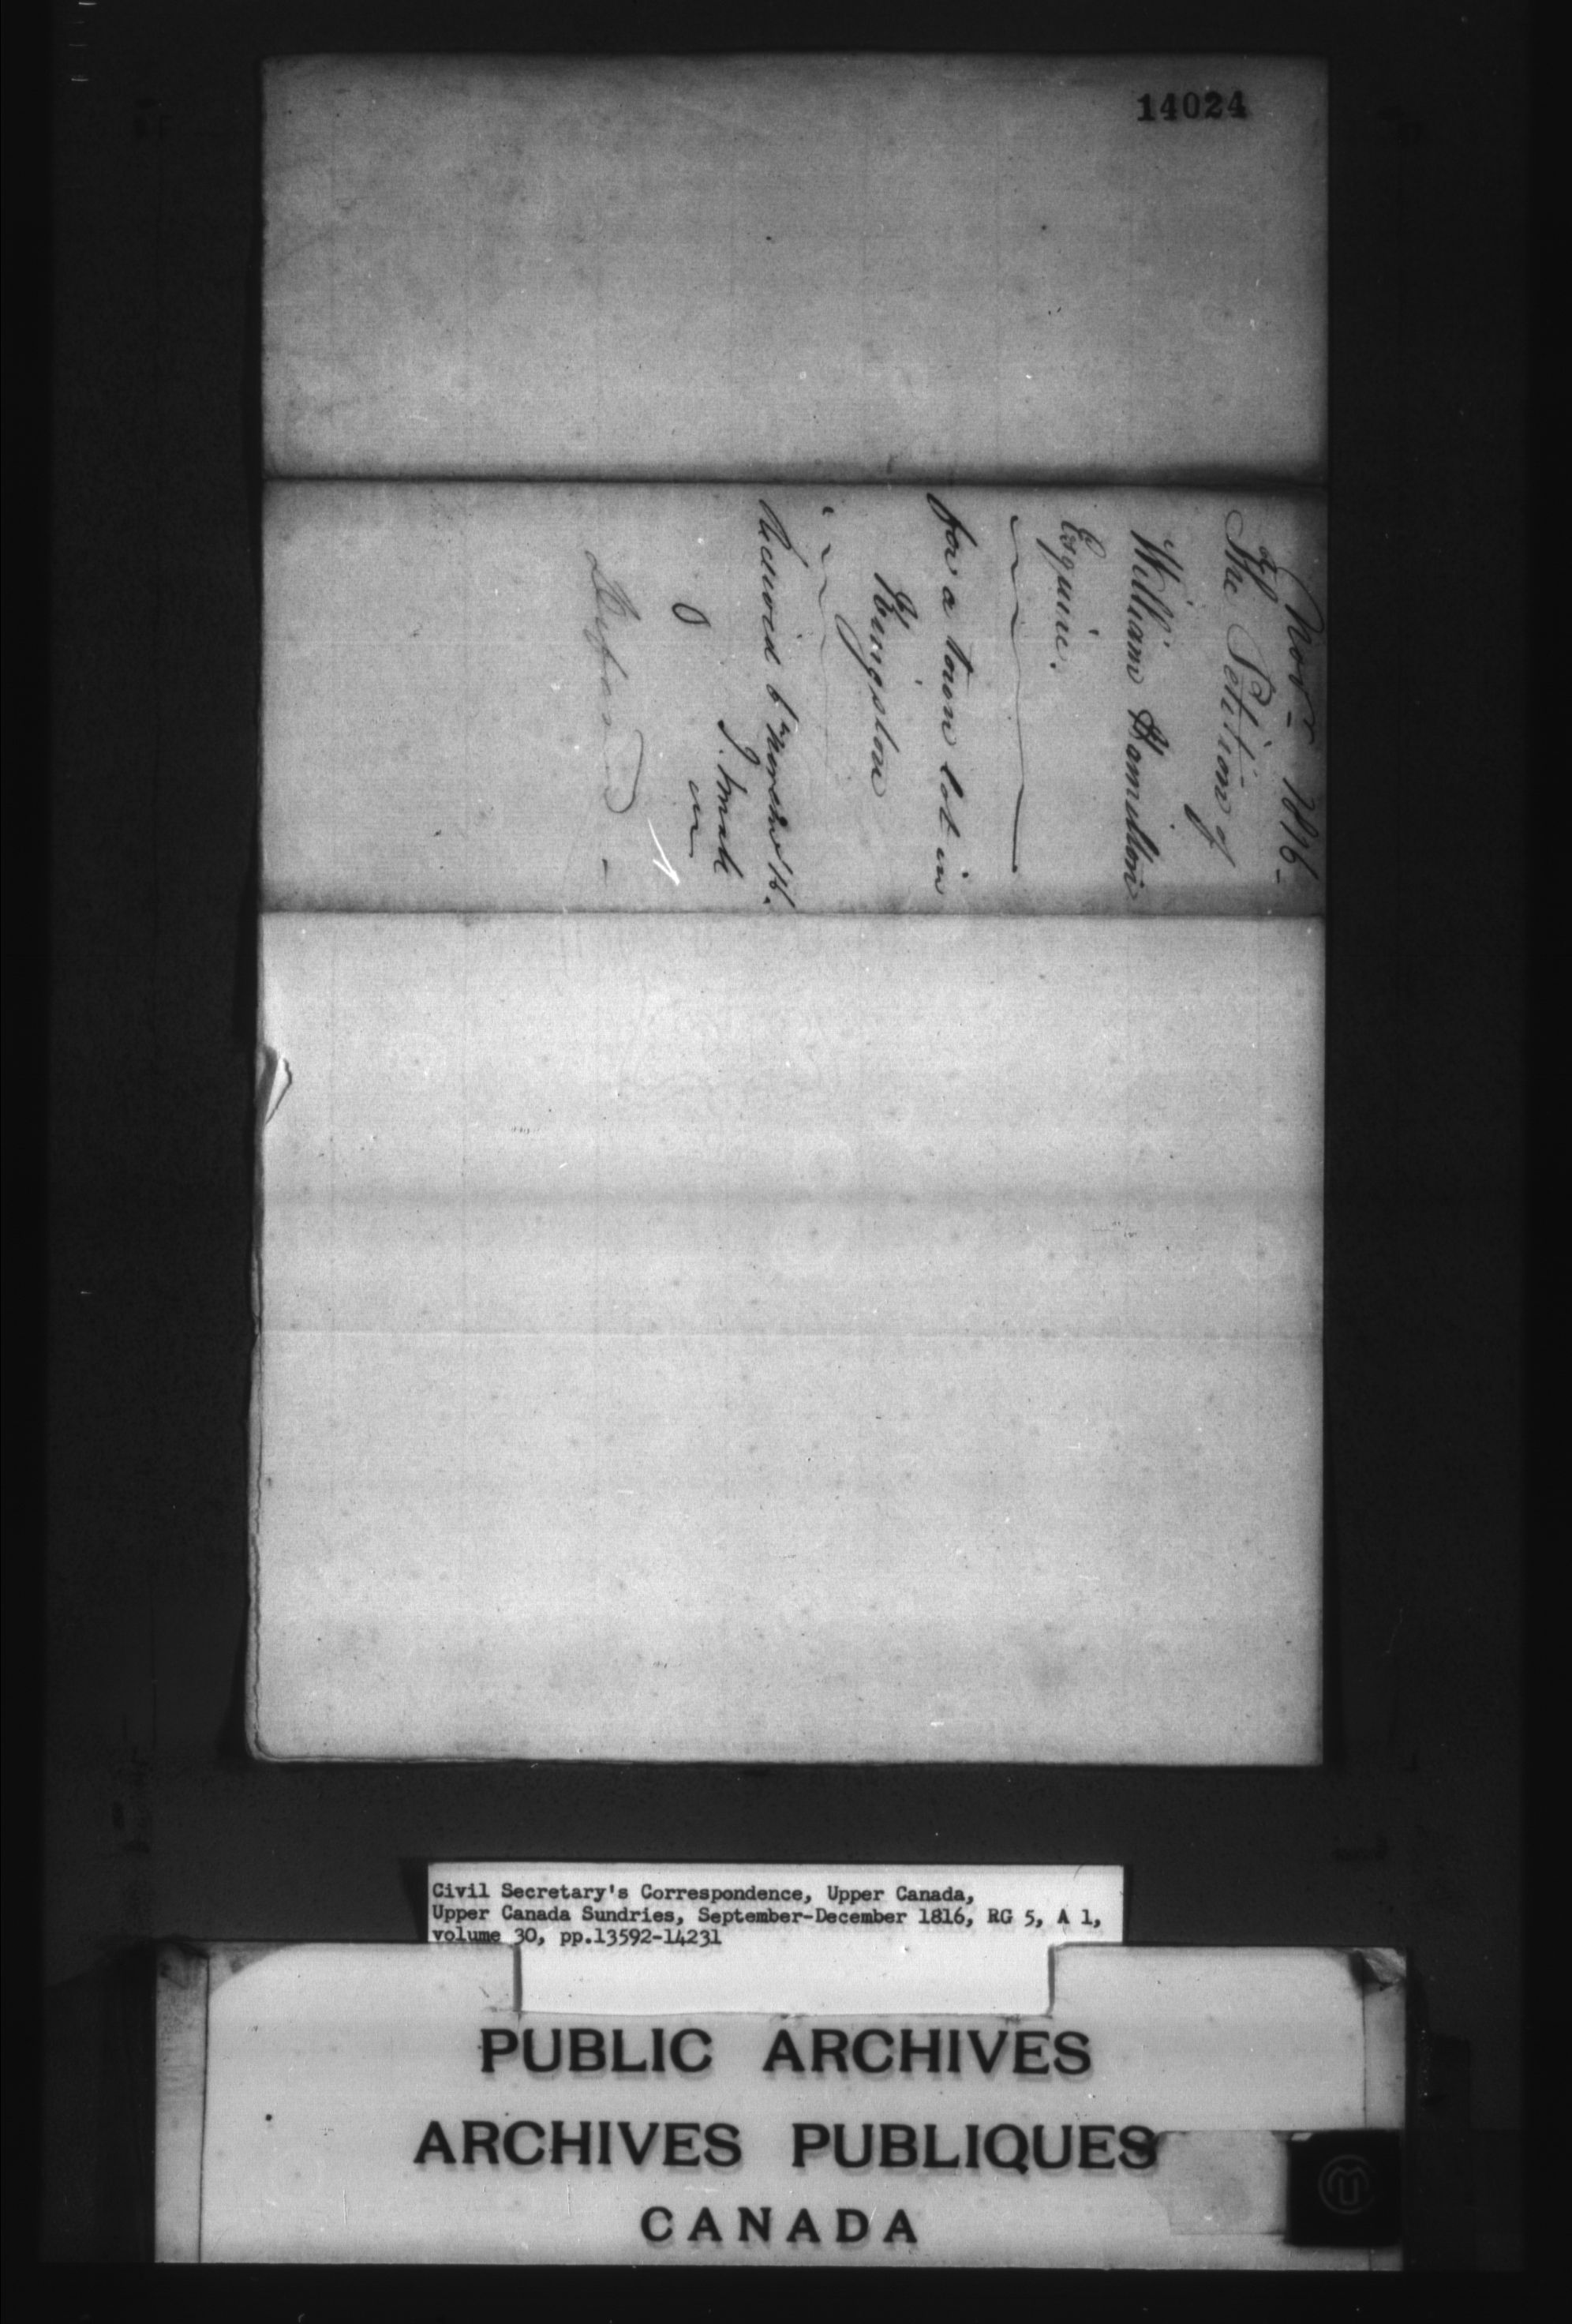 14024
Novr 1816-
The Petition of
William Hamilton
Esquire.
for a town lot in
Kingston
Received 6th Novem 16.
J. Small
Civil Secretary's Correspondence, Upper Canada,
Upper Canada Sundries, September-December 1816, RG 5, A 1,
volume 30, pp.13592-14231
PUBLIC ARCHIVES
ARCHIVES PUBLIQUES
CANADA